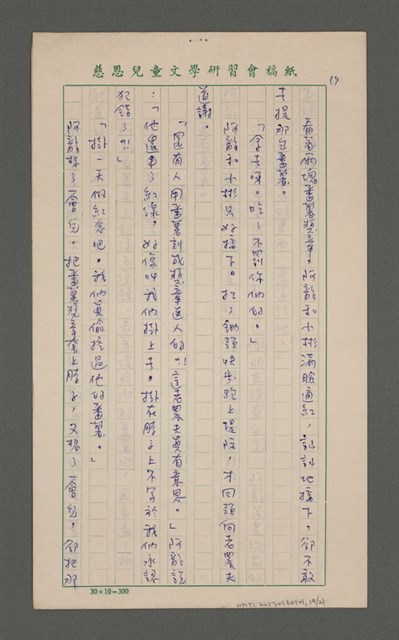 慈恩兒童文學研習會稿紙
19
看著兩塊番薯獎章。阿龍和小彬滿臉通紅，訕訕地接下。卻不敢
去提那包番薯。
「拿去呀。吃了不罰你們的。」
阿龍和小彬只好接下。扛了鋤頭快步跑上堤防，才回頭向老農夫
道謝。
「還有人用番薯刻成獎章送人的！這老農夫真有意思。」阿龍說
：「他還串了紅線。好像叫我們掛上去。掛在脖子上不等於我們承認
犯錯了！」
「掛一天做紀念吧。我們真偷挖過他的番薯。」
阿龍想了一會兒。把番薯獎章套上脖子，又想了一會兒。卻把那
30×10=300